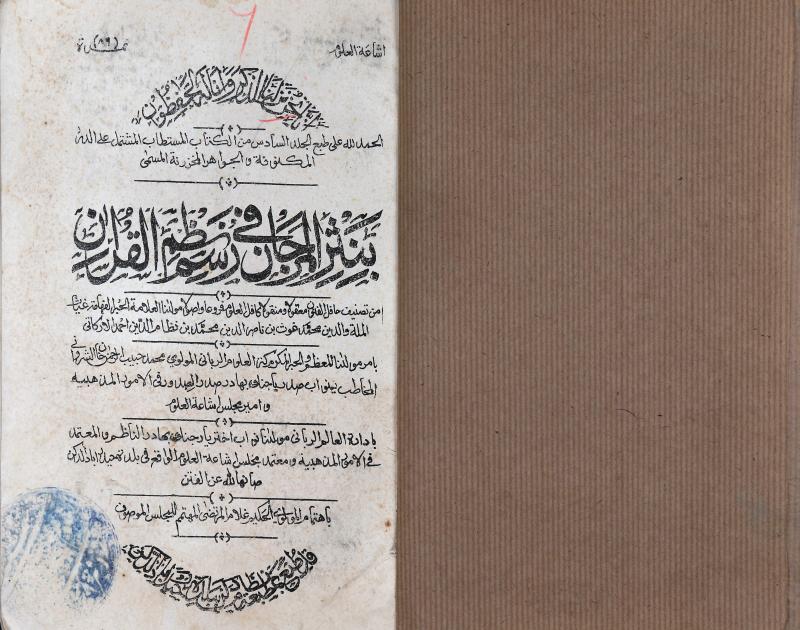 اشاعة العلوم
نمبر (٨٩)
انا نحن نزلنا الذكر وانا له لحفظون
الحمد لله على طبع الجلد السادس من الكتاب المستطاب المشتمل على الدرة
المكنونة والجواهر المخزونة المسمى
بنثر المرجان في رسم نظم القران
من تصنيف حافل الفنون معقولا ومنقولا كافل العلوم فروعا واصولا مولنا العلامة الحبر الفهامة غياث
الملة والدين محمد غوث بن ناصر الدين محمد بن نظام الدين احمد الاركاتي
بامر مولنا المعظم والحبر المكرم مركز العلوم الرباني المولوي محمد حبيب الرحمن خان الشرواني
المخاطب بنواب صدر يار جنگ بهادر صدر الصدور في الامور المذهبية
وامير مجلس اشاعة العلوم
بادارة العالم الرباني مولنا نواب اختر يار جنگ بهادر الناظم والمعتمد
في الامور المذهبية ومعتمد مجلس اشاعة العلوم الواقعة في بلدة حيدراباد الدكن
صانها الله عن الفتن
باهتمام المولوي الحكيم غلام المرتضى المهتمم للمجلس الموصوف
قد طبع بمطبعة